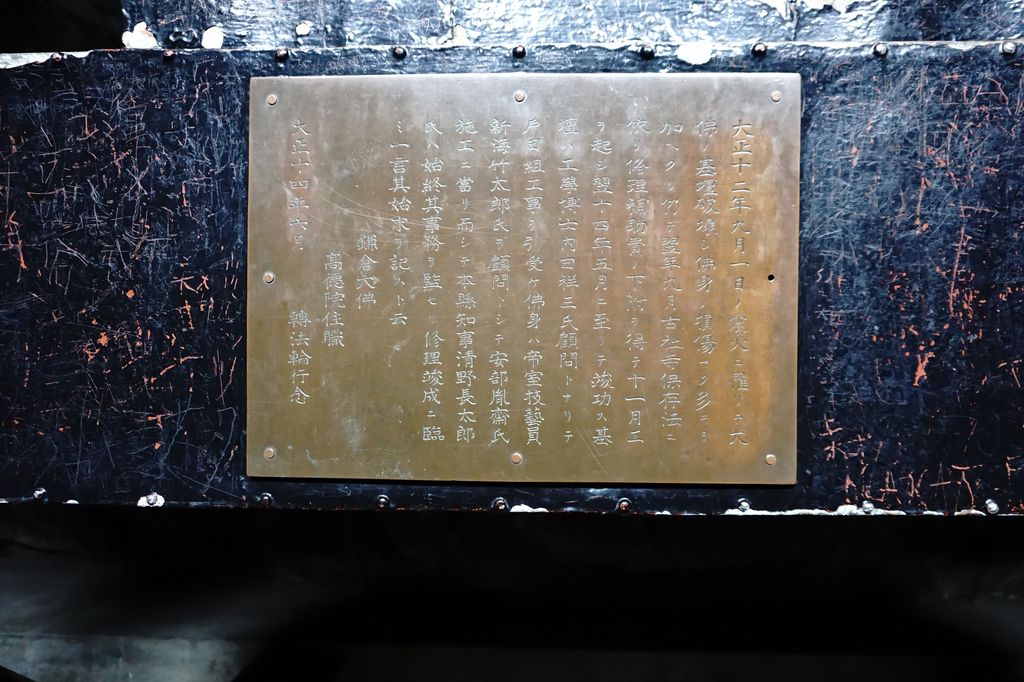 大正十二年九月一日ノ震火ニ罹リテ大
佛ノ基壇破壊シ佛身ノ損傷マタ多ニヲ
加ヘタリ仍テ翌年九月古社寺保存法ニ
依リ修理補助費ノ下附ヲ得テ十一月工
ヲ起シ翌十四年五月ニ至リテ竣功ス基
壇ハ工學博士内田祥三氏顧問トナリテ
戸田組工事ヲ引受ケ佛身ハ帝室技藝員
新海竹太郎氏ヲ顧問トシテ安部胤齋氏
施工ニ當リ而シテ本縣知事清野長太郎
氏ハ始終其事務ヲ監セリ修理竣成ニ臨
ミ一言其始末ヲ記スト云
鎌倉大佛
高德院住職
大正十四年六月 轉法輪行念